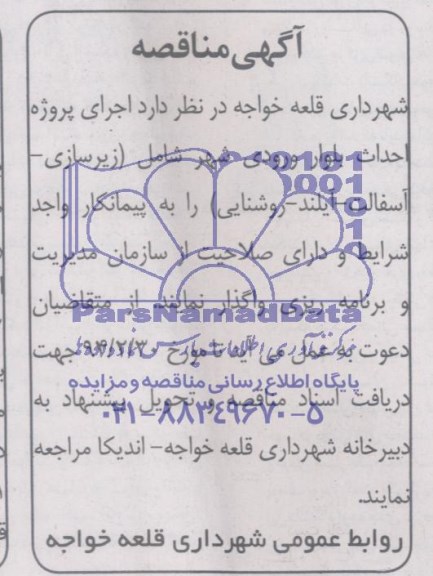 آگهی مناقصه
شهرداری قلعه خواجه در نظر دارد اجرای پروژه
احداث بلوار ورودی شهر شامل (زیرسازی-
آسفالت-آیلند-روشنایی) را به پیمانکار واجد
شرایط و دارای صلاحیت از سازمان مدیریت
و برنامه ریزی واگذار نمایند از متقاضیان
ParsNamadData
دعوت به عمل می آید تا مورخ جهت
پایگاه اطلاع رسانی مناقصه و مزایده
دریافت اسناد مناقصه و تحویل پیشنهاد به
۰۲۱-۸۸۳۴۹۶۷۰-۵
دبیرخانه شهرداری قلعه خواجه- اندیکا مراجعه
نمایند.
روابط عمومی شهرداری قلعه خواجه